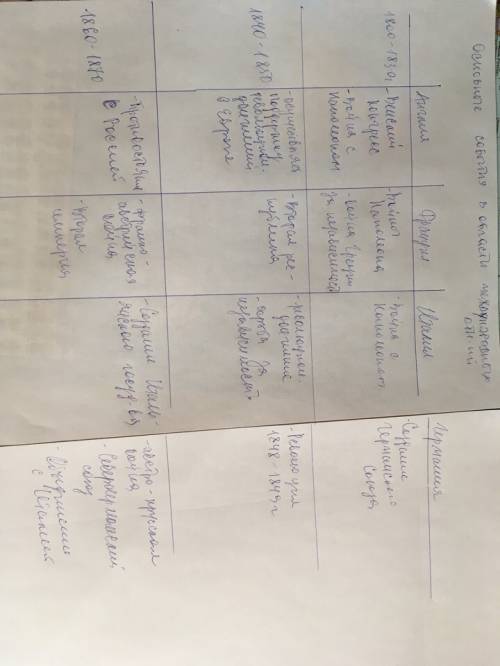 Основные события в области международных
отний
Англия
Франция
Италия
Германия
1800-1830г
-Венский
конгресс
-Война с
Наполеоном
-Войны
Наполеона
-война Греции
за независимость
-Война с
Наполеоном
-Создание
Германского
Союза
1840-1850
-осуществлять
поддержку
революцион.
движений
в Европе
-Вторая рес-
публика
-революцион.
движение
-борьба за
независимость
-Революция
1848-1849г
1860-1870
-Противостояние
с Россией
-франко-
война
-Вторая
империя
-Создание Италь-
янского госуд-ва
-австро-прусская
война
-Северогерманский
союз
-Объединение